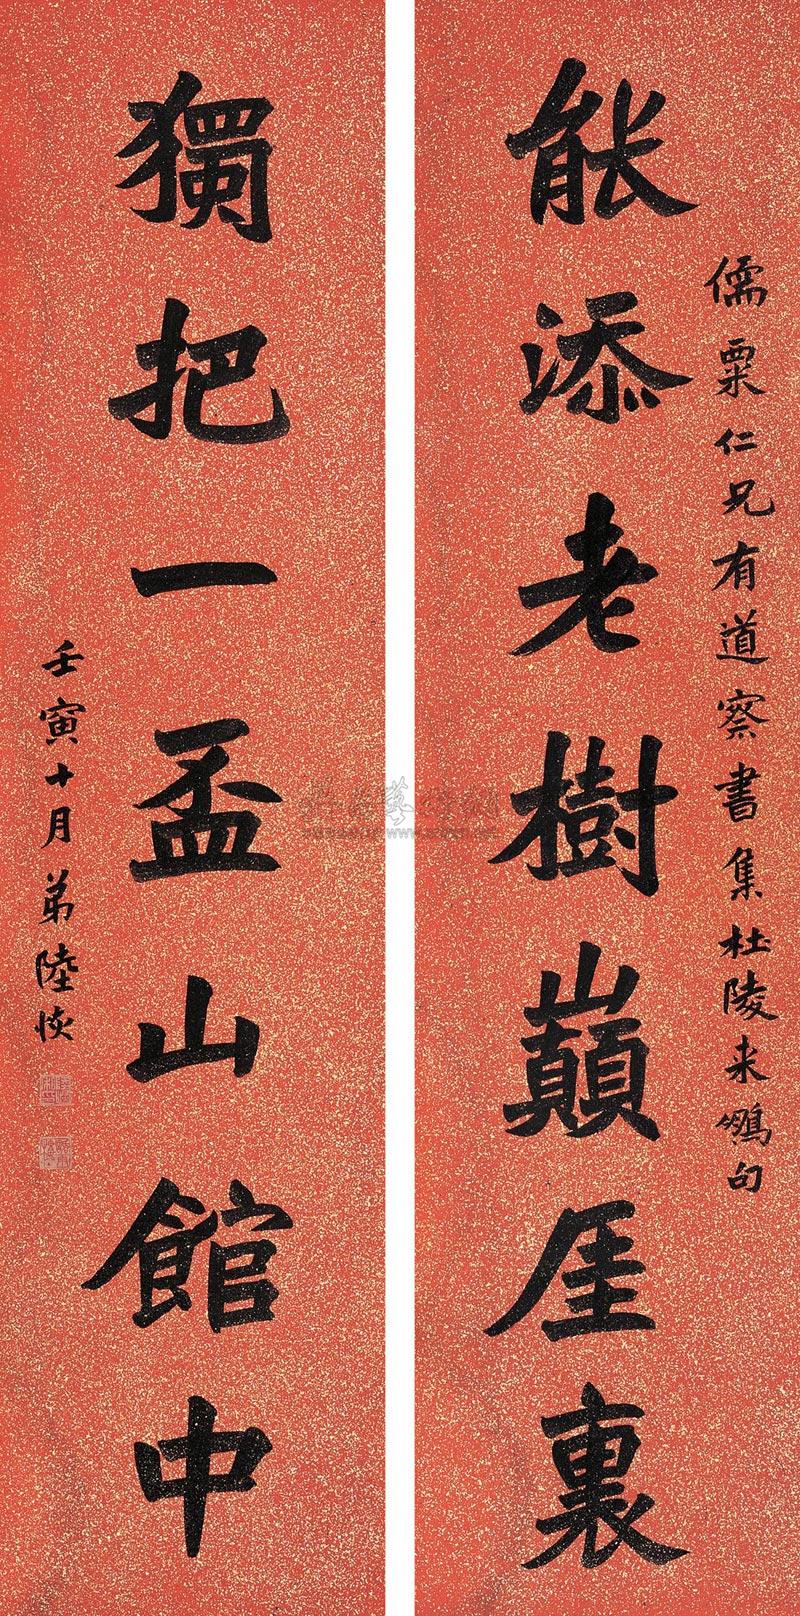 儒粟仁兄有道察書集杜陵来鶴句
能添老樹巔厓裏
獨把一盃山館中
壬寅十月弟陸恢